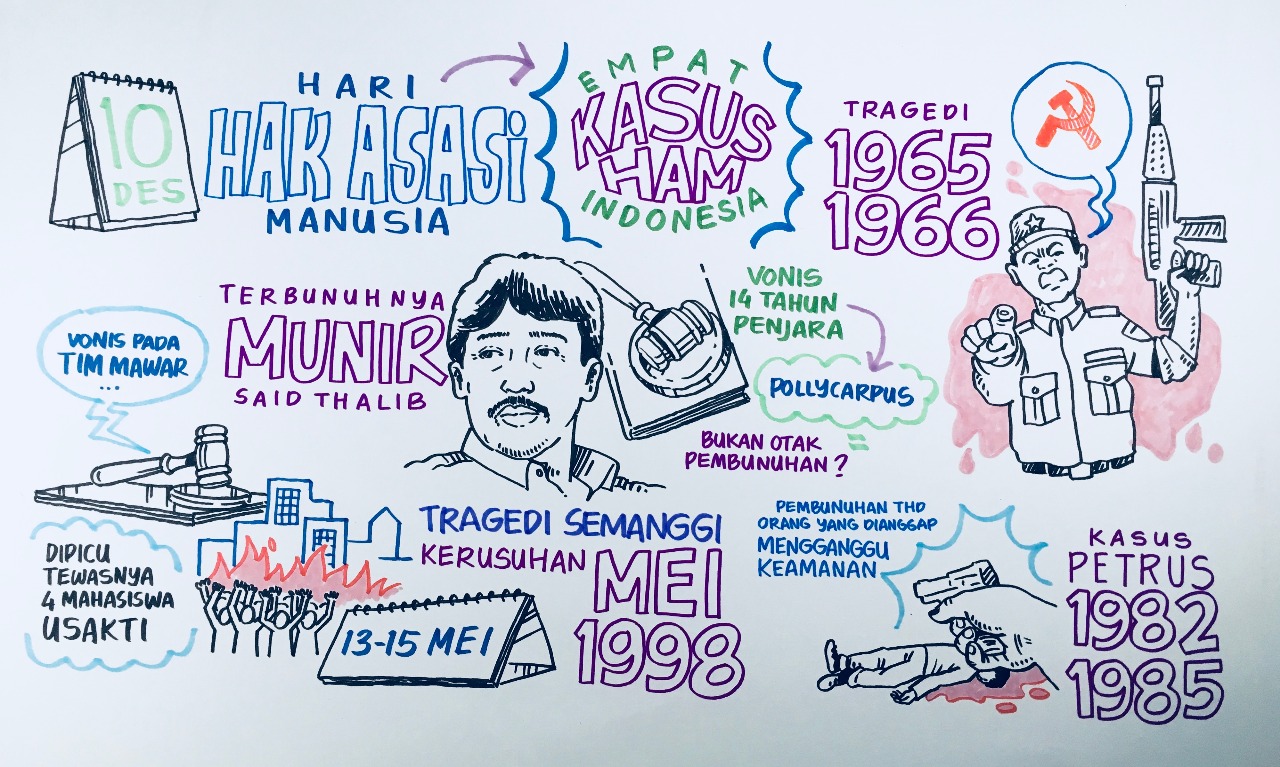 10
DES
HARI
HAK ASASi
MANUSIA
EMPAT
KASUS
HAM
INDONESIA
TRAGEDI
1965
1966
TERBUNUHNYA
MUNIR
SAID THALIB
VONIS
14 TAHUN
PENJARA
POLLYCARPUS
=
BUKAN OTAK
PEMBUNUHAN?
VONIS PADA
TIM MAWAR
...
DIPICU
TEWASNYA
4 MAHASISWA
USAKTI
TRAGEDI SEMANGGI
KERUSUHAN MEI
1998
13-15 MEI
PEMBUNUHAN THD
ORANG YANG DIANGGAP
MENGGANGGU
KEAMANAN
KASUS
PETRUS
1982
1985